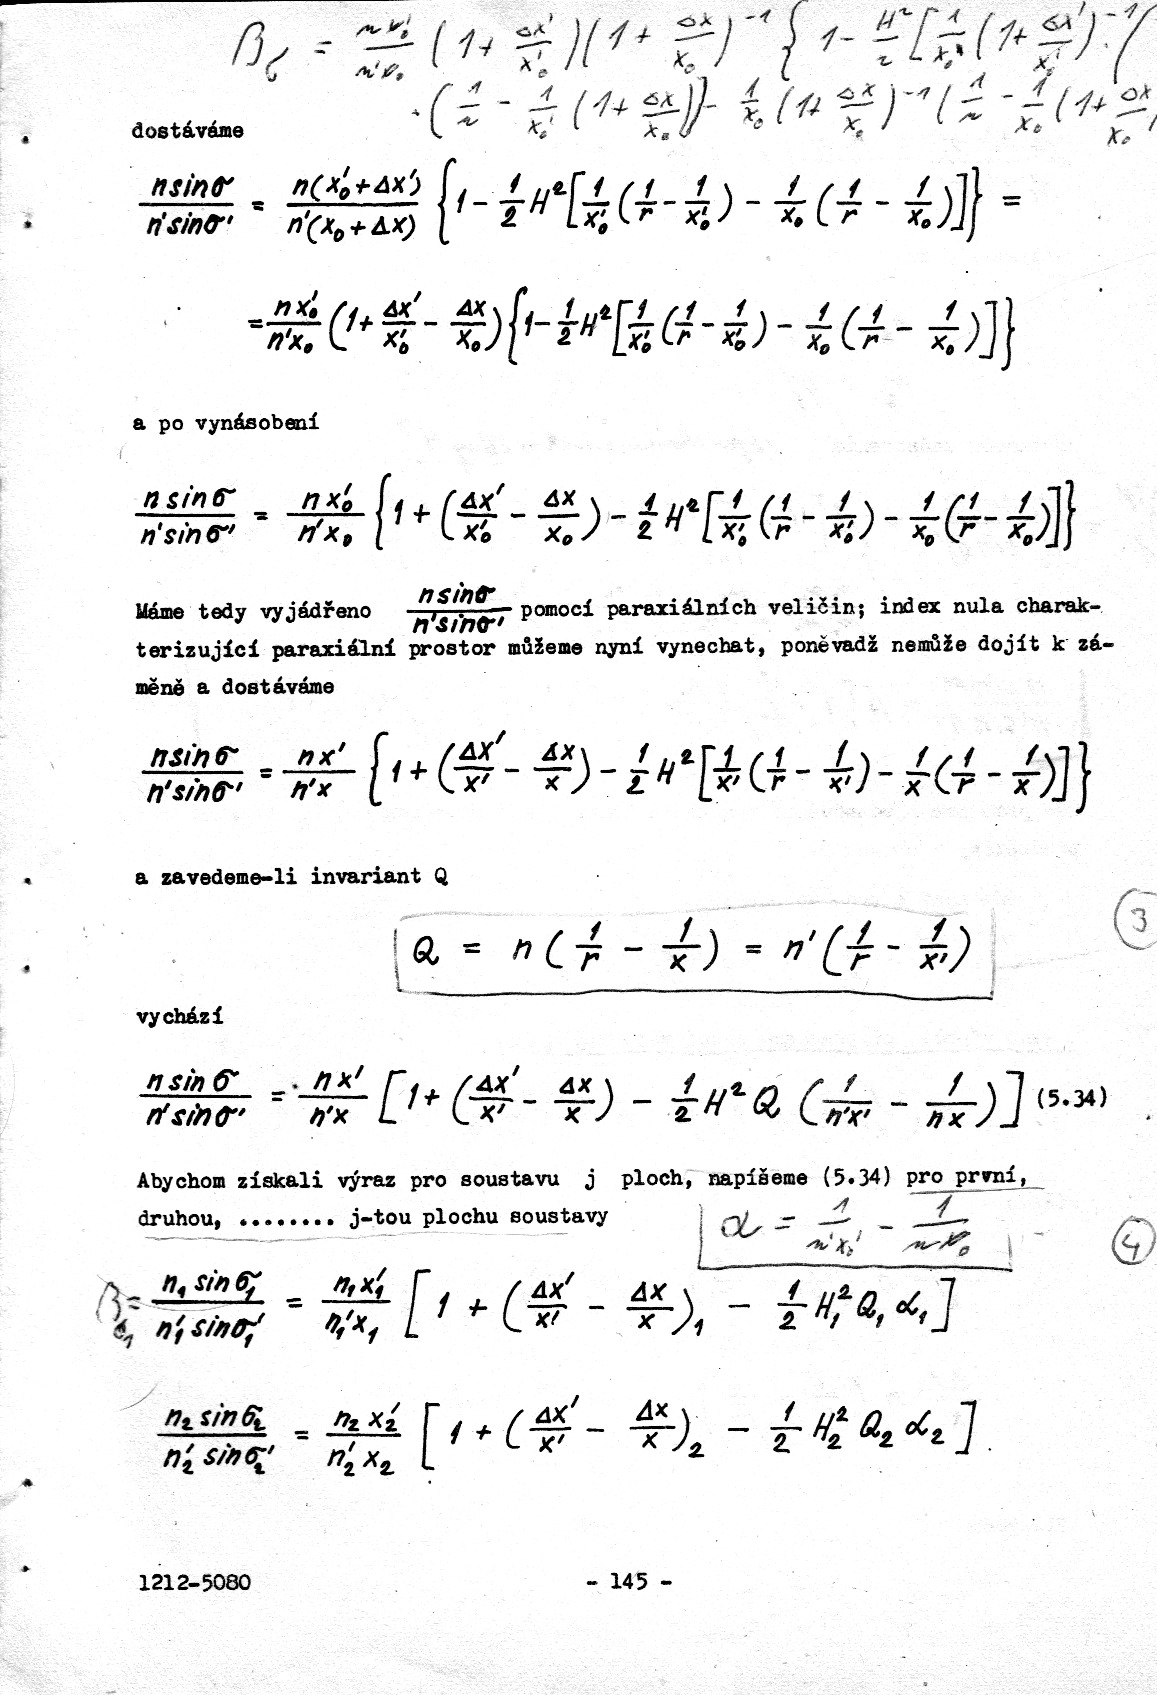 β_σ = n x'₀ / n' x₀ (1 + Δx'/x'₀)(1 + Δx/x₀)⁻¹ { 1 - H²/2 [ 1/x'₀ (1 + Δx'/x'₀)⁻¹ · (
· ( 1/r - 1/x'₀ (1 + Δx/x₀)) - 1/x₀ (1 + Δx/x₀)⁻¹ ( 1/r - 1/x₀ (1 + Δx/x₀
dostáváme
n sinσ / n' sinσ' = n(x'₀ + Δx') / n'(x₀ + Δx) { 1 - 1/2 H² [ 1/x'₀ ( 1/r - 1/x'₀ ) - 1/x₀ ( 1/r - 1/x₀ ) ] } =
= n x'₀ / n' x₀ ( 1 + Δx'/x'₀ - Δx/x₀ ) { 1 - 1/2 H² [ 1/x'₀ ( 1/r - 1/x'₀ ) - 1/x₀ ( 1/r - 1/x₀ ) ] }
a po vynásobení
n sinσ / n' sinσ' = n x'₀ / n' x₀ { 1 + ( Δx'/x'₀ - Δx/x₀ ) - 1/2 H² [ 1/x'₀ ( 1/r - 1/x'₀ ) - 1/x₀ ( 1/r - 1/x₀ ) ] }
Máme tedy vyjádřeno n sinσ / n' sinσ' pomocí paraxiálních veličin; index nula charak-
terizující paraxiální prostor můžeme nyní vynechat, poněvadž nemůže dojít k zá-
měně a dostáváme
n sinσ / n' sinσ' = n x' / n' x { 1 + ( Δx'/x' - Δx/x ) - 1/2 H² [ 1/x' ( 1/r - 1/x' ) - 1/x ( 1/r - 1/x ) ] }
a zavedeme-li invariant Q
Q = n ( 1/r - 1/x ) = n' ( 1/r - 1/x' )
3
vychází
n sinσ / n' sinσ' = n x' / n' x [ 1 + ( Δx'/x' - Δx/x ) - 1/2 H² Q ( 1/n'x' - 1/nx ) ] (5.34)
Abychom získali výraz pro soustavu j ploch, napíšeme (5.34) pro první,
druhou, ........ j-tou plochu soustavy
α = 1/n'x'₀ - 1/nx₀
4
β_σ₁ = n₁ sinσ₁ / n'₁ sinσ'₁ = n₁ x'₁ / n'₁ x₁ [ 1 + ( Δx'/x' - Δx/x )₁ - 1/2 H₁² Q₁ α₁ ]
n₂ sinσ₂ / n'₂ sinσ₂' = n₂ x'₂ / n'₂ x₂ [ 1 + ( Δx'/x' - Δx/x )₂ - 1/2 H₂² Q₂ α₂ ].
1212-5080
- 145 -